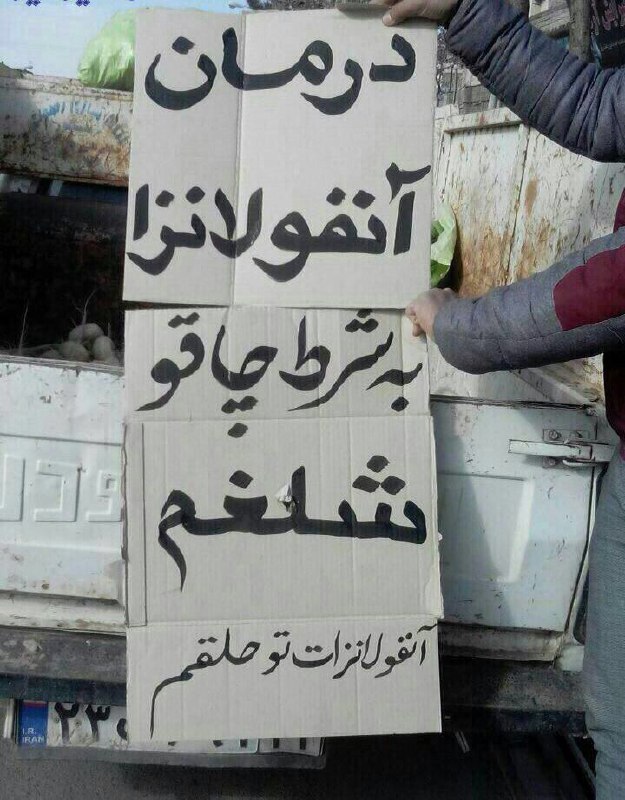 درمان
آنفولانزا
به شرط چاقو
شلغم
آنفولانزات تو حلقم
I.R.
IRAN
۲۳